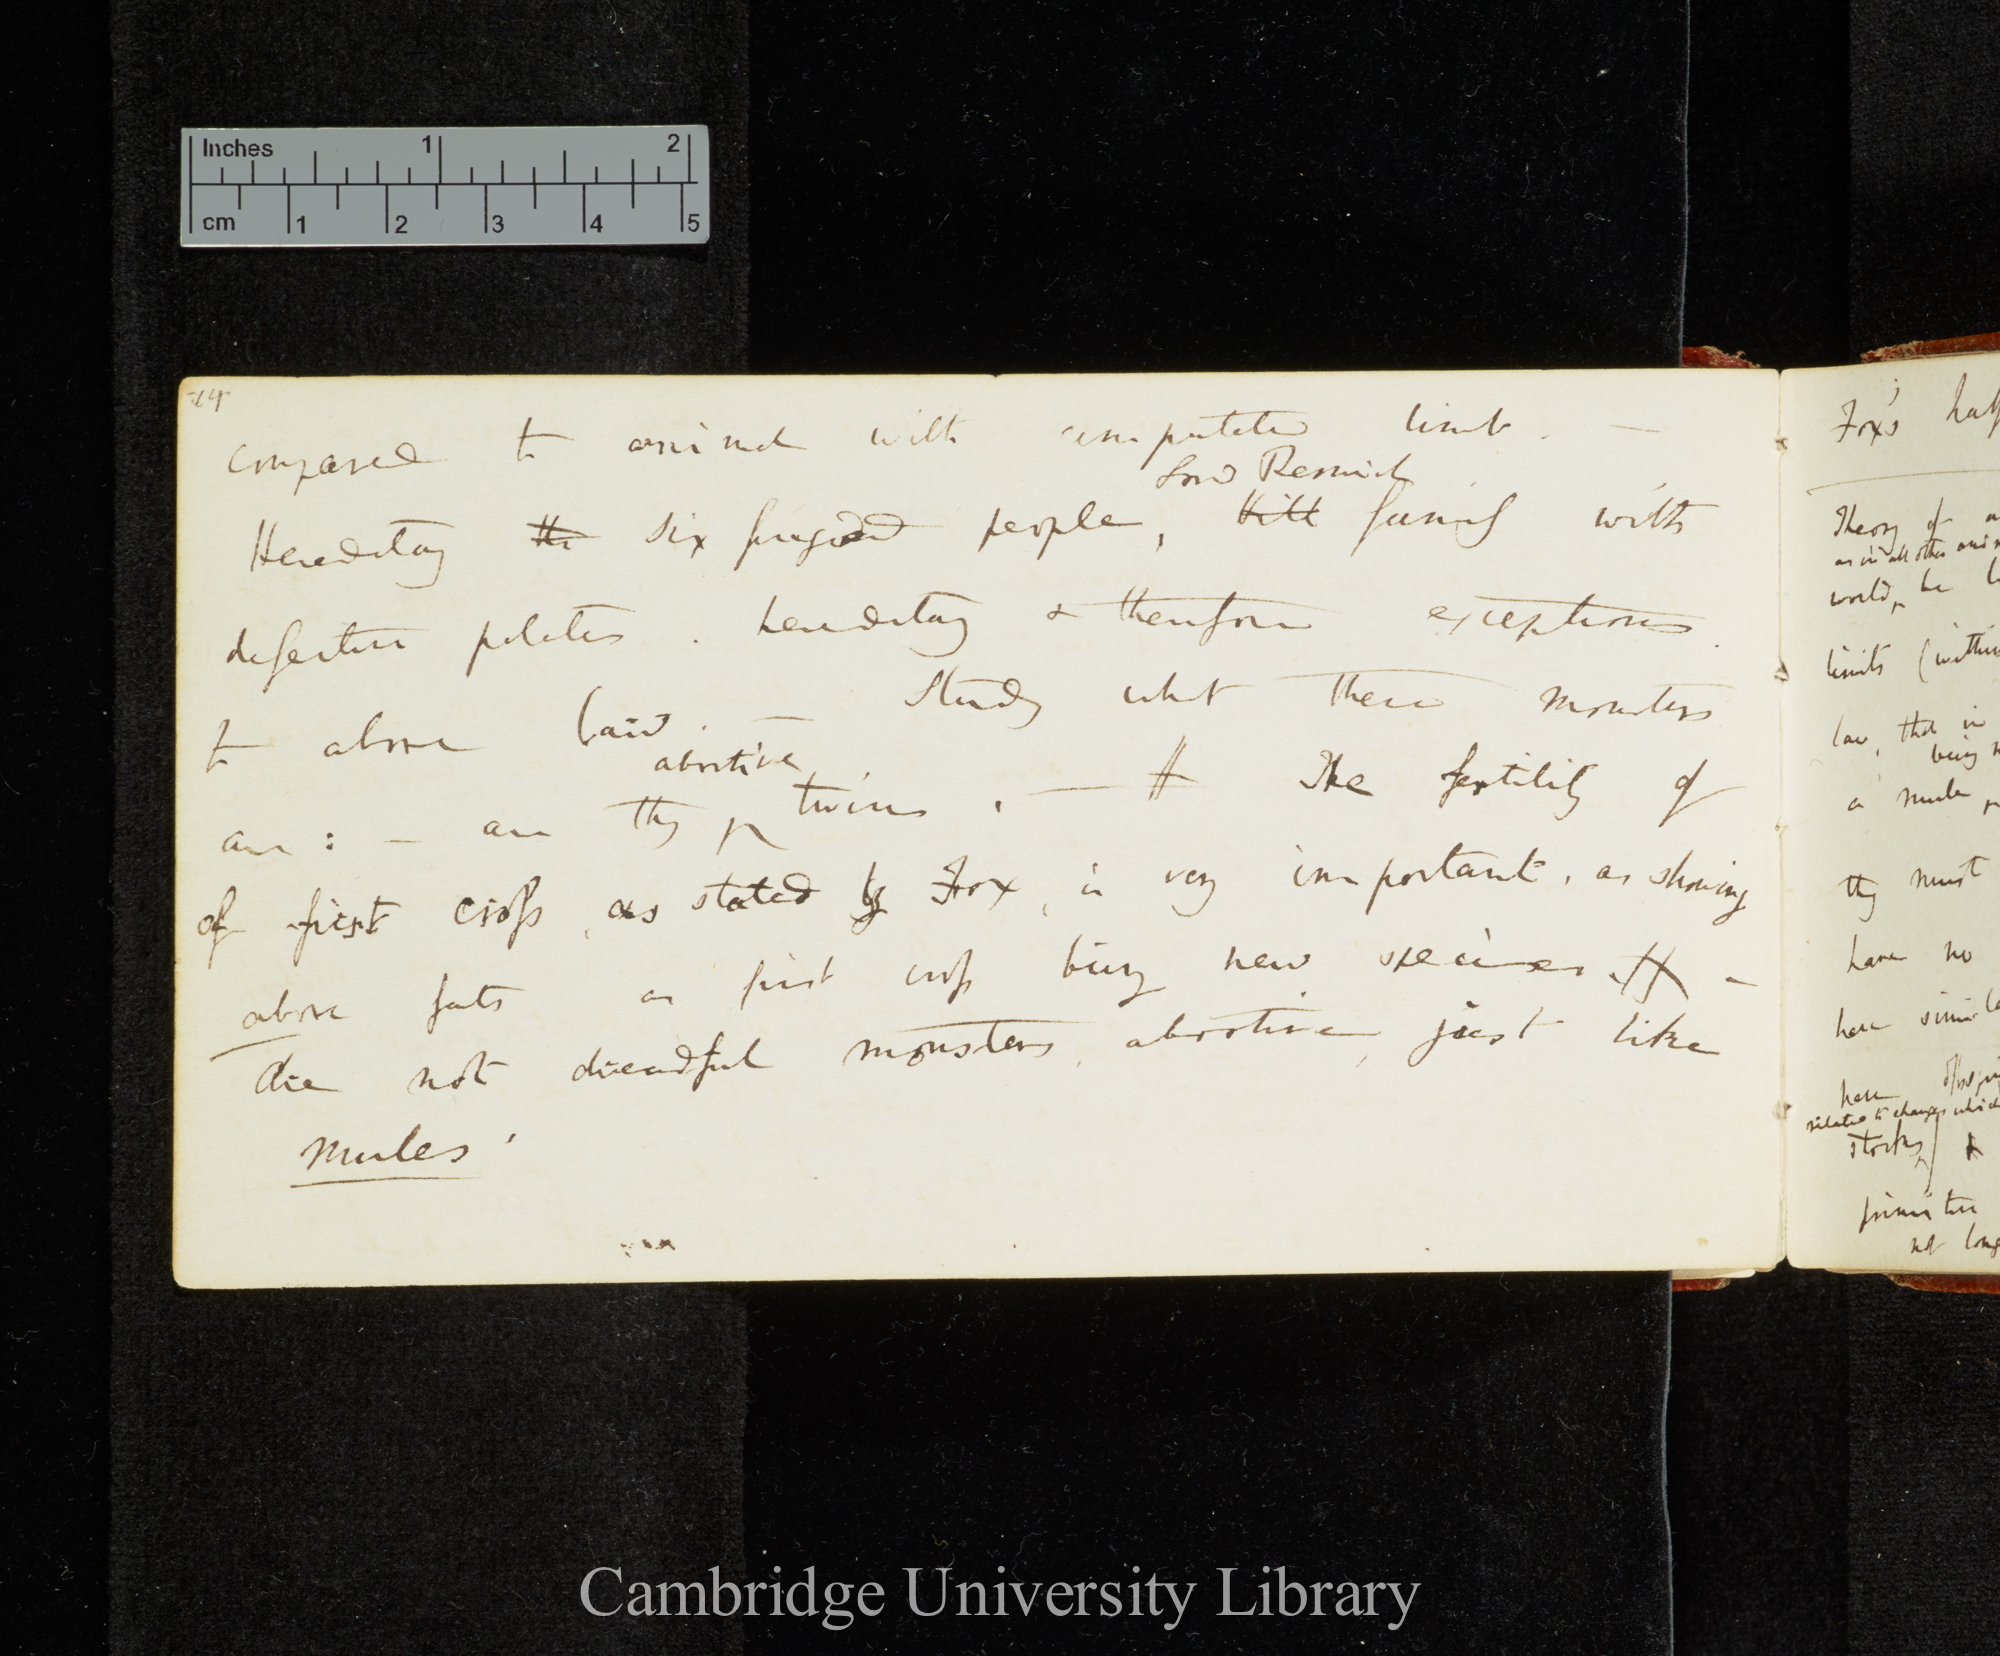 Inches 1 2
cm 1 2 3 4 5
14
compared to animal with amputated limb. —
Lord Berwick
Hereditary the six fingered people, Kill family with
defective palates. hereditary & therefore exceptions
to above law. — Study what these monsters
abortive
are: — are they twins. — The fertility of
of first cross, as stated by Fox, is very important, as showing
above facts as first cross being new species —
are not dreadful monsters, abortive, just like
mules.
Fox's half
Theory of
as in all other
world, be
limits (within
law, that in
being
a mule
they must
have no
have
have
relative to changes which
stocks
primitive
not long
Cambridge University Library